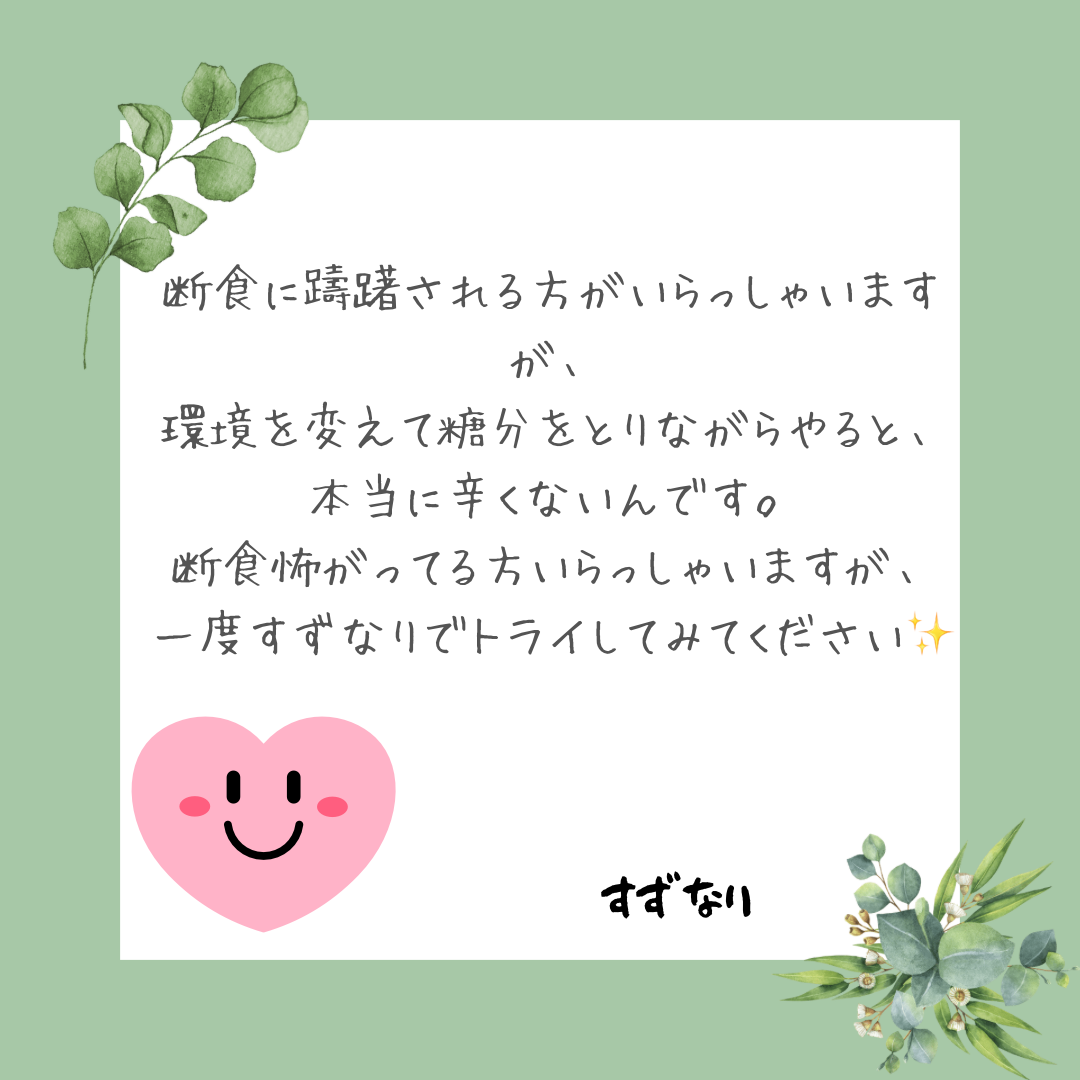 断食に躊躇される方がいらっしゃいます
が、
環境を変えて糖分をとりながらやると、
本当に辛くないんです。
断食怖がってる方いらっしゃいますが、
一度すずなりでトライしてみてください✨
すずなり